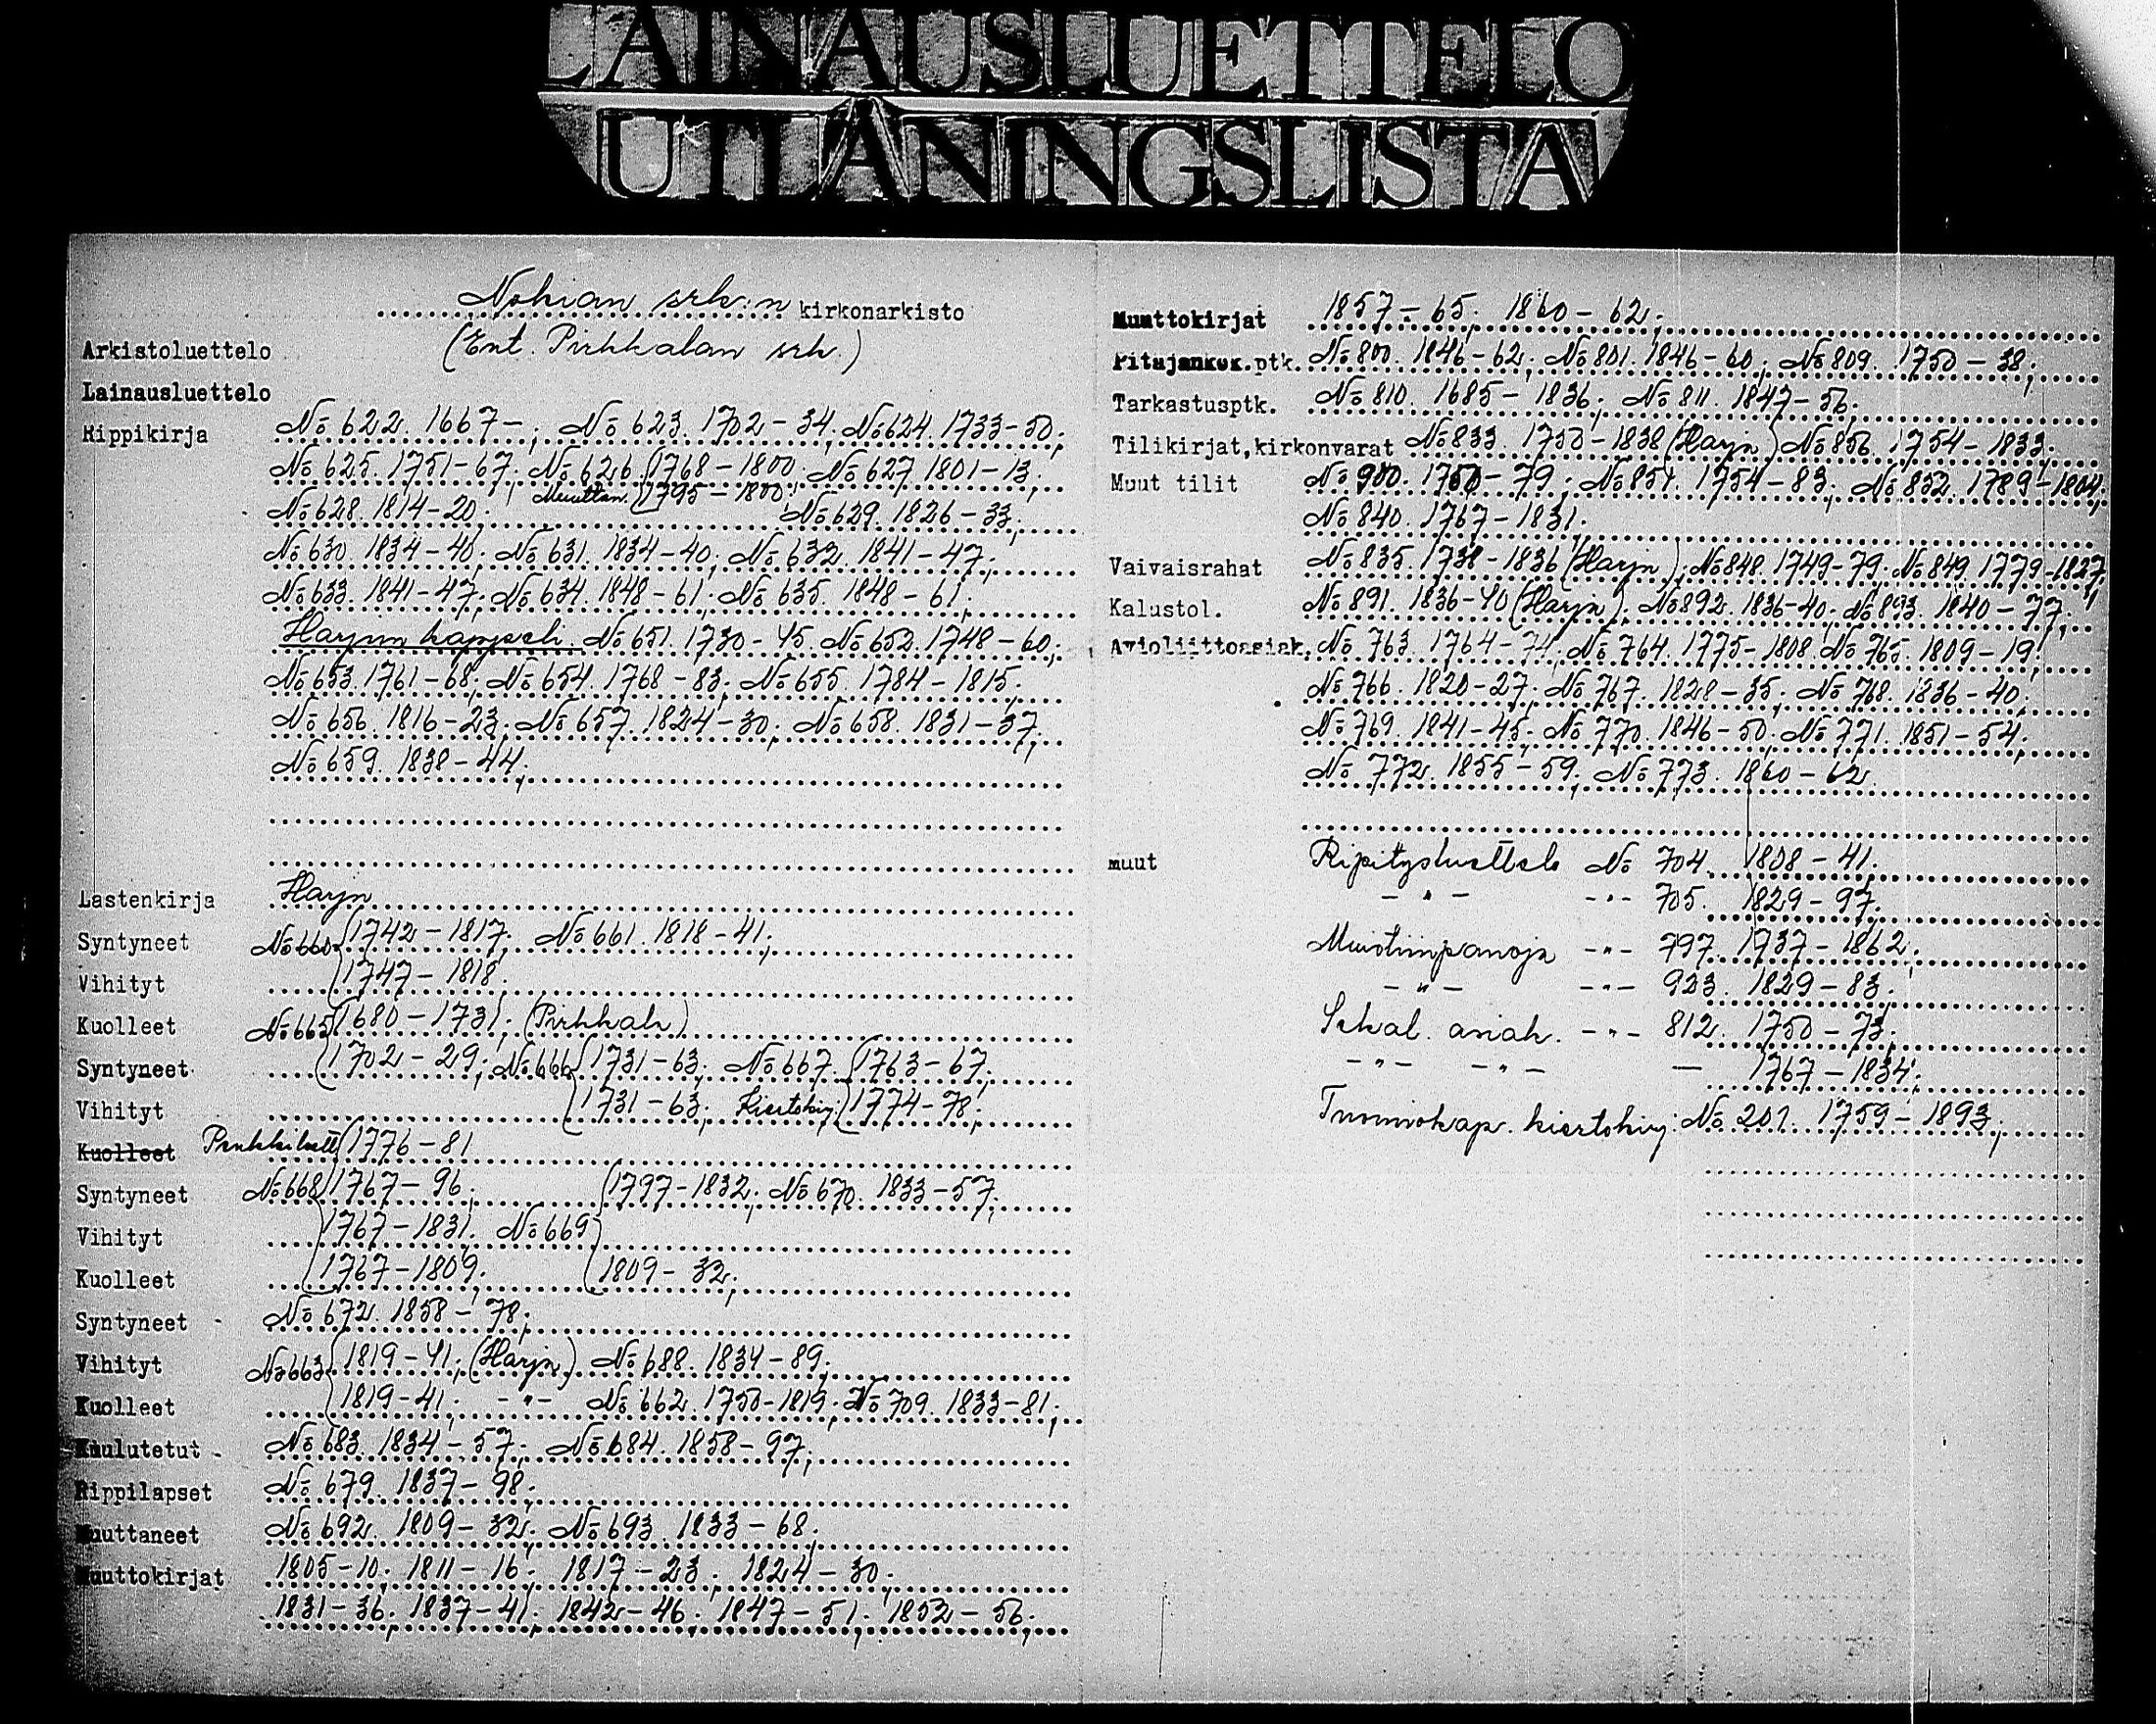 LAINAUSLUETTELO
UTLÅNINGSLISTA
Nokian srk:n kirkonarkisto
Arkistoluettelo (Ent. Pirkkalan srk.)
Lainausluettelo
Rippikirja No 622. 1667-; No 623. 1702-34. No 624. 1733-50;
No 625. 1751-67; No 626. 1768-1800; No 627. 1801-13;
Muuttan. 1795-1800;
No 628. 1814-20; No 629. 1826-33;
No 630. 1834-40; No 631. 1834-40; No 632. 1841-47;
No 633. 1841-47; No 634. 1848-61; No 635. 1848-61;
Harjun kappeli: No 651. 1730-45. No 652. 1748-60;
No 653. 1761-68; No 654. 1768-83; No 655. 1784-1815;
No 656. 1816-23; No 657. 1824-30; No 658. 1831-37;
No 659. 1838-44;
Lastenkirja Harju
Syntyneet No 660 1742-1817; No 661. 1818-41;
Vihityt 1747-1818;
Kuolleet No 665 1680-1731; (Pirkkala)
Syntyneet 1702-29; No 666 1731-63; No 667 1763-67;
Vihityt 1731-63; Kiertokirj: 1774-78;
Kuolleet Penkkiluett 1776-81
Syntyneet No 668 1767-96; 1797-1832; No 670. 1833-57;
Vihityt 1767-1831. No 669
Kuolleet 1767-1809; 1809-32;
Syntyneet No 672. 1858-78;
Vihityt No 663 1819-41; (Harju) No 688. 1834-89;
Kuolleet 1819-41; -"- No 662. 1750-1819; No 709. 1833-81;
Kuulutetut No 683. 1834-57; No 684. 1858-97;
Rippilapset No 679. 1837-98;
Muuttaneet No 692. 1809-32; No 693. 1833-68;
Muuttokirjat 1805-10; 1811-16; 1817-23; 1824-30;
1831-36; 1837-41; 1842-46; 1847-51; 1852-56;
Muuttokirjat 1857-65; 1860-62;
Pitäjänkok.ptk. No 800. 1846-62; No 801. 1846-60; No 809. 1750-38;
Tarkastusptk. No 810. 1685-1836; No 811. 1847-56;
Tilikirjat,kirkonvarat No 833. 1750-1838 (Harju) No 856. 1754-1833;
Muut tilit No 900. 1760-79; No 851. 1754-83; No 852. 1789-1804;
No 840. 1767-1831.
Vaivaisrahat No 835. 1738-1836 (Harju); No 848. 1749-79. No 849. 1779-1827;
Kalustol. No 891. 1836-40 (Harju); No 892. 1836-40; No 893. 1840-77;
Avioliittoasiak. No 763. 1764-74; No 764. 1775-1808. No 765. 1809-19;
No 766. 1820-27; No 767. 1828-35; No 768. 1836-40;
No 769. 1841-45; No 770. 1846-50; No 771. 1851-54;
No 772. 1855-59; No 773. 1860-62.
muut Ripitysluettelo No 704. 1808-41.
-"- -"- 705. 1829-97.
Muistiinpanoja -"- 797. 1737-1862;
-"- -"- 923. 1829-83.
Sekal. asiak. -"- 812. 1750-73;
-"- -"- — 1767-1834;
Tuomiokap. kiertokirj: No 201. 1759-1893;